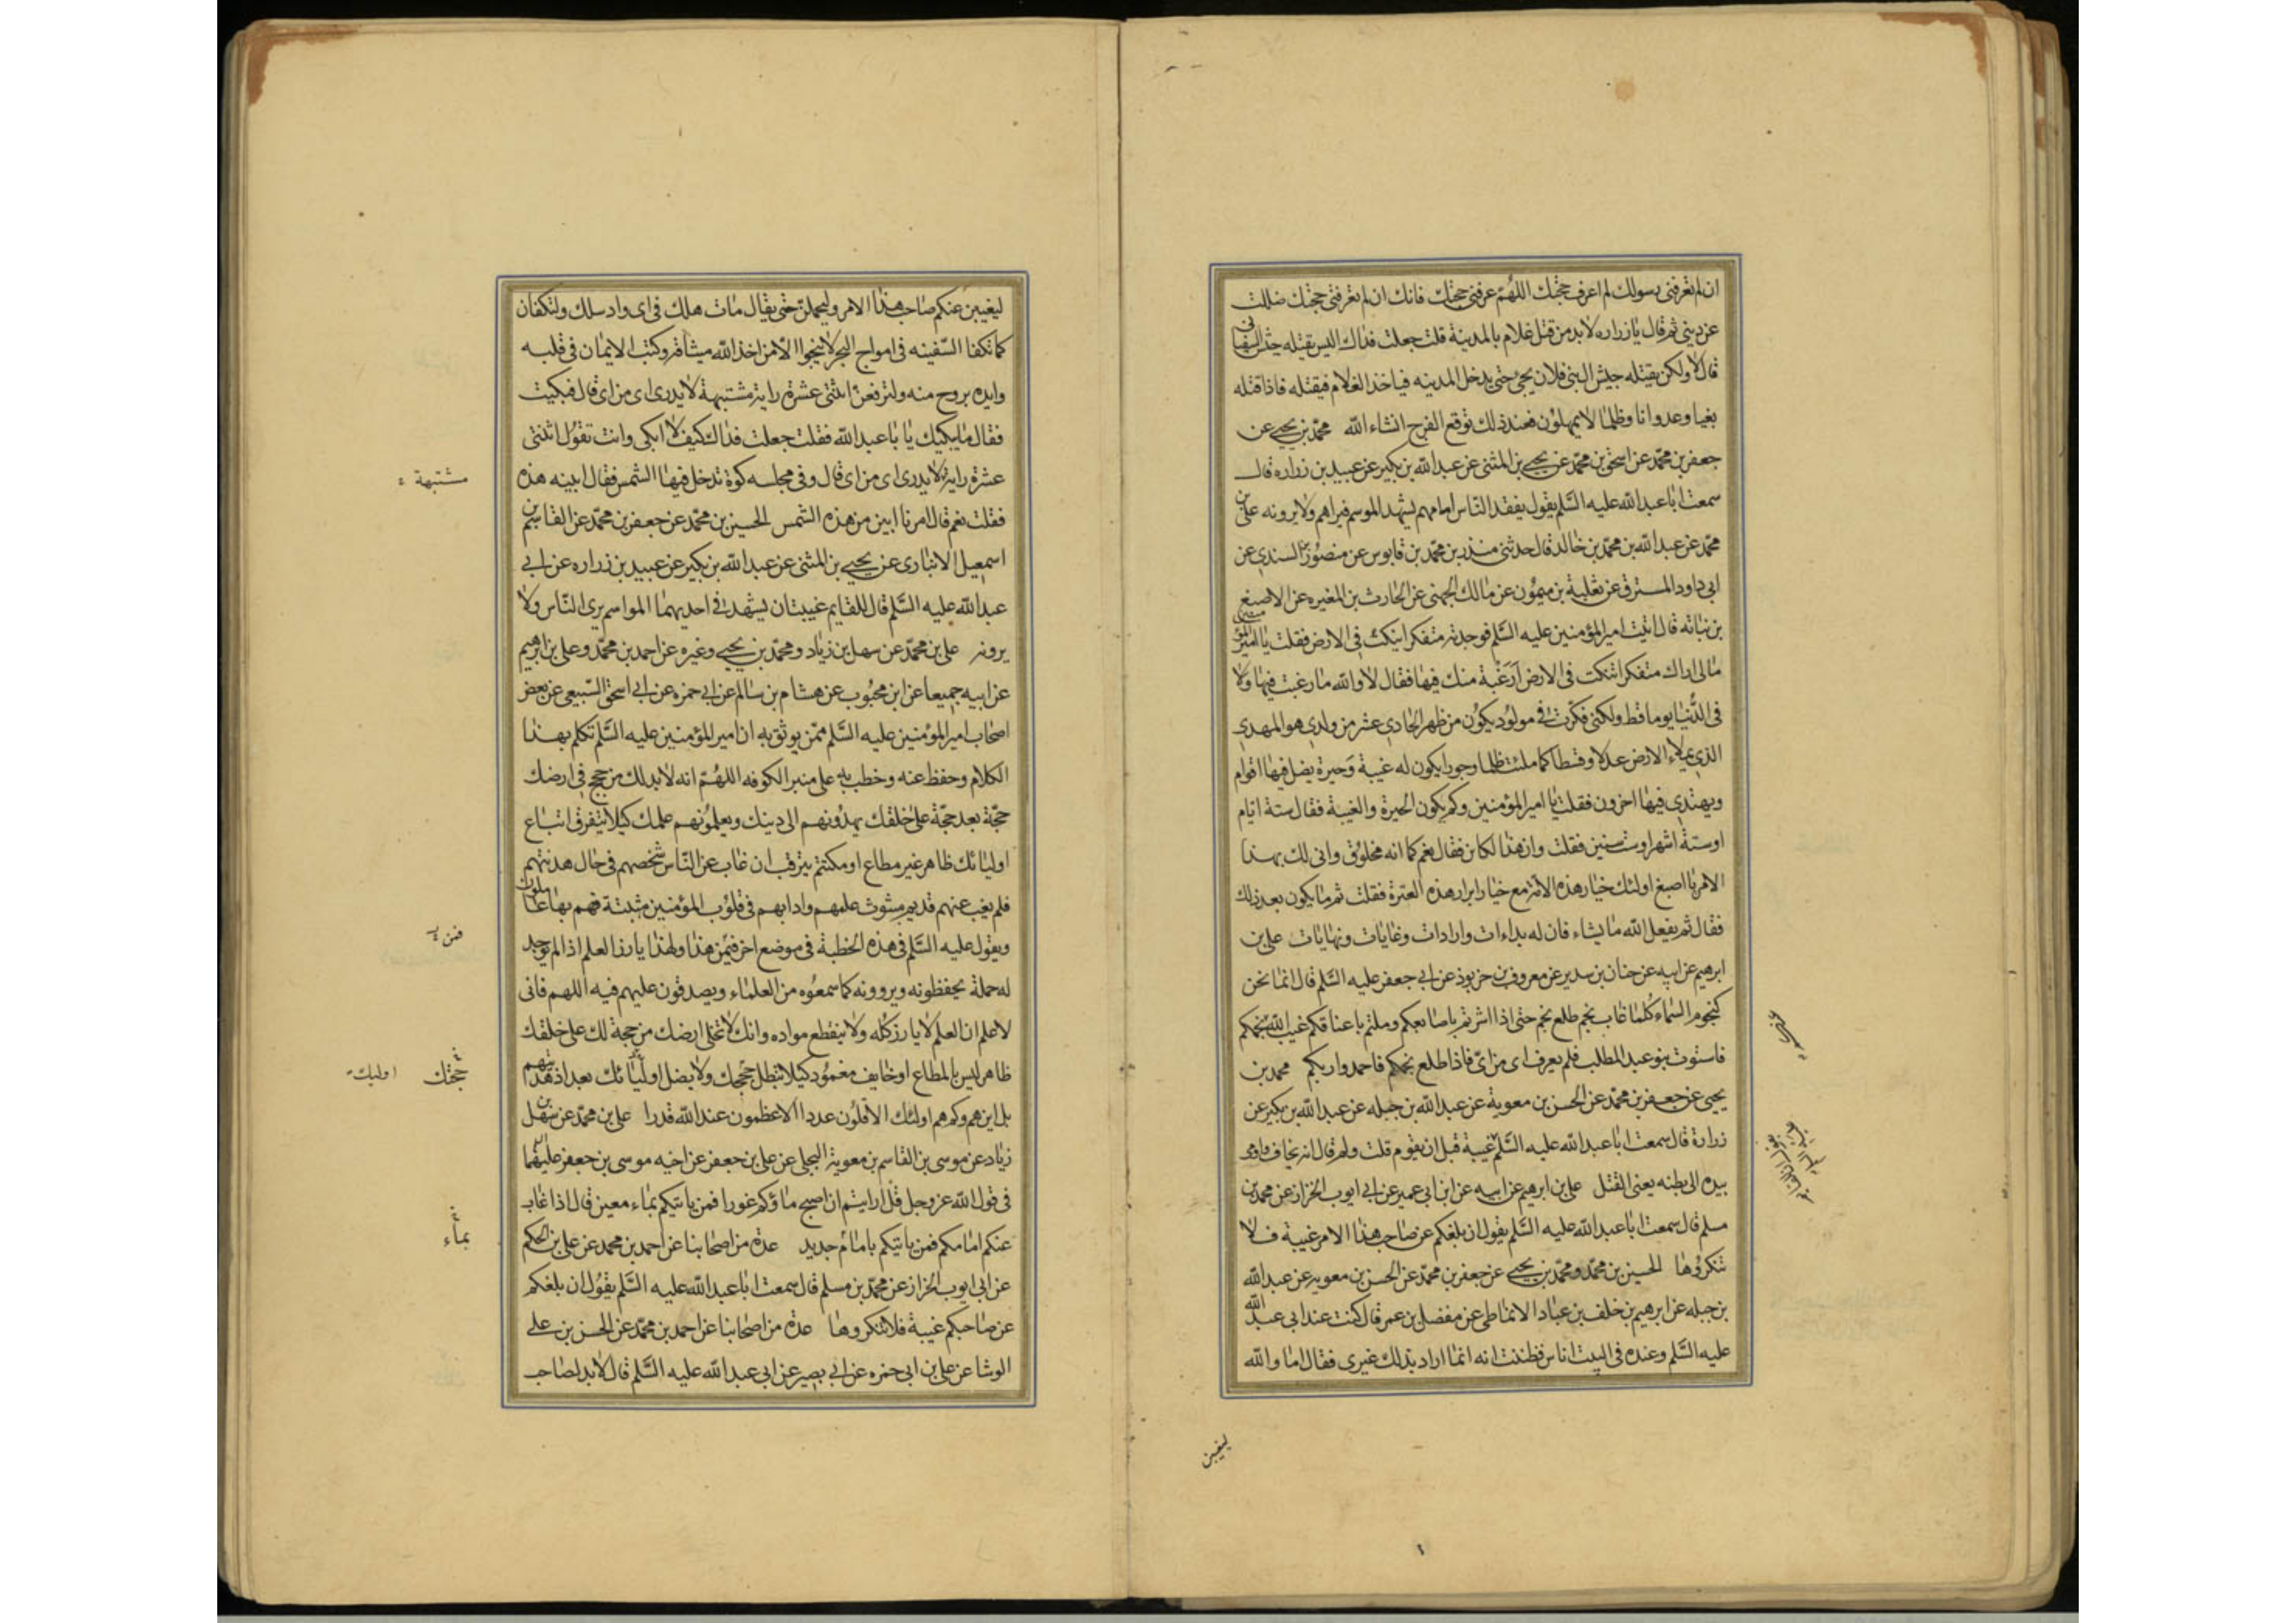 ان لم تعرفنى رسولك لم اعرف حجتك اللهم عرفنى حجتك فانك ان لم تعرفنى حجتك ضللت
عن دينى ثم قال يا زراره لابد من قتل غلام بالمدينة قلت جعلت فداك اليس يقتله جيش السفيانى
قال لا ولكن يقتله جيش ال بنى فلان يجئ حتى يدخل المدينه فياخذ الغلام فيقتله فاذا قتله
بغيا وعدوانا وظلما لا يمهلون فعند ذلك توقع الفرج انشاء الله محمد بن يحيى عن
جعفر بن محمد عن اسحق بن محمد عن يحيى بن المثنى عن عبد الله بن بكير عن عبيد بن زراره قال
سمعت ابا عبد الله عليه السلم يقول يفقد الناس امامهم ليشهد الموسم فيراهم ولا يرونه على بن
محمد عن عبد الله بن محمد بن خالد قال حدثنى منذر بن محمد بن قابوس عن منصور بن السندى عن
ابى داود المسترق عن ثعلبة بن ميمون عن مالك الجهنى عن الحارث بن المغيره عن الاصبغ
بن نباته قال اتيت امير المؤمنين عليه السلم فوجدته متفكرا ينكت فى الارض فقلت يا امير المؤمنين
مالى اراك متفكرا تنكت فى الارض ارغبة منك فيها فقال لا والله ما رغبت فيها ولا
فى الدنيا يوما قط ولكنى فكرت فى مولود يكون من ظهر الحادى عشر من ولدى هو المهدى
الذى يملاء الارض عدلا وقسطا كما ملئت ظلما وجورا يكون له غيبة وحيرة يضل فيها اقوام
ويهتدى فيها اخرون فقلت يا امير المؤمنين وكم يكون الحيرة والغيبة فقال ستة ايام
او ستة اشهر او ست سنين فقلت وان هذا لكائن فقال نعم كما انه مخلوق وانى لك بهذا
الامر يا اصبغ اولئك خيار هذه الامة مع خيار ابرار هذه العترة فقلت ثم ما يكون بعد ذلك
فقال ثم يفعل الله ما يشاء فان له بداءات وارادات وغايات ونهايات على بن
ابرهيم عن ابيه عن حنان بن سدير عن معروف بن خربوذ عن ابى جعفر عليه السلم قال انما نحن
كنجوم السماء كلما غاب نجم طلع نجم حتى اذا اشرتم باصابعكم وملتم باعناقكم غيب الله نجمكم
فاستوت بنو عبد المطلب فلم يعرف اى من اى فاذا طلع نجمكم فاحمدوا ربكم محمد بن
يحيى عن جعفر بن محمد عن الحسن بن معوية عن عبد الله بن جبله عن عبد الله بن بكير عن
زرارة قال سمعت ابا عبد الله عليه السلم غيبة قبل ان يقوم قلت ولم قال انه يخاف واومى
بيده الى بطنه يعنى القتل على بن ابرهيم عن ابيه عن ابن ابى عمير عن ابى ايوب الخزاز عن محمد بن
مسلم قال سمعت ابا عبد الله عليه السلم يقول ان بلغكم عن صاحب هذا الامر غيبة فلا
تنكروها الحسين بن محمد ومحمد بن يحيى عن جعفر بن محمد عن الحسن بن معويه عن عبد الله
بن جبله عن ابرهيم بن خلف بن عباد الانماطى عن مفضل بن عمر قال كنت عند ابى عبد الله
عليه السلم وعنده فى البيت اناس فظننت انه انما اراد بذلك غيرى فقال اما والله
ليغيبن
ليغيبن عنكم صاحب هذا الامر وليخملن حتى يقال مات هلك فى اى واد سلك ولتكفان
كما تكفا السفينه فى امواج البحر لا ينجوا الا من اخذ الله ميثاقه وكتب الايمان فى قلبه
وايده بروح منه ولترفعن اثنتى عشرة راية مشتبهة لا يدرى اى من اى قال فبكيت
فقال ما يبكيك يا با عبد الله فقلت جعلت فداك كيف لا ابكى وانت تقول اثنتى
عشرة راية لا يدرى اى من اى قال وفى مجلسه كوة تدخل فيها الشمس فقال ابينه هذه
مشتبهة
فقلت نعم قال امرنا ابين من هذه الشمس الحسين بن محمد عن جعفر بن محمد عن القاسم بن
اسمعيل الانبارى عن يحيى بن المثنى عن عبد الله بن بكير عن عبيد بن زراره عن ابى
عبد الله عليه السلم قال للقايم غيبتان يشهد فى احديهما المواسم يرى الناس ولا
يرونه على بن محمد عن سهل بن زياد ومحمد بن يحيى وغيره عن احمد بن محمد وعلى بن ابرهيم
عن ابيه جميعا عن ابن محبوب عن هشام بن سالم عن ابى حمزه عن ابى اسحق السبيعى عن بعض
اصحاب امير المؤمنين عليه السلم ممن يوثق به ان امير المؤمنين عليه السلم تكلم بهذا
الكلام وحفظ عنه وخطب به على منبر الكوفه اللهم انه لابد لك من حجج فى ارضك
حجة بعد حجة على خلقك يهدونهم الى دينك ويعلمونهم علمك كيلا يتفرق اتباع
اوليائك ظاهر غير مطاع او مكتتم يترقب ان غاب عن الناس شخصهم فى حال هدنتهم
فلم يغب عنهم قديم مبثوث علمهم وادابهم فى قلوب المؤمنين مثبتة فهم بها عاملون
ويقول عليه السلم فى هذه الخطبة فى موضع اخر فيمن هذا ولهذا يارز العلم اذا لم يوجد
فمن
له حملة يحفظونه ويروونه كما سمعوه من العلماء ويصدقون عليهم فيه اللهم فانى
لاعلم ان العلم لا يارز كله ولا ينقطع مواده وانك لا تخلى ارضك من حجة لك على خلقك
ظاهر ليس بالمطاع او خايف مغمود كيلا تبطل حججك ولا يضل اوليائك بعد اذ هديتهم
حججك اوليك
بل اين هم وكم هم اولئك الاقلون عددا الاعظمون عند الله قدرا على بن محمد عن سهل بن
زياد عن موسى بن القاسم بن معوية البجلى عن على بن جعفر عن اخيه موسى بن جعفر عليهما
فى قول الله عز وجل قل ارايتم ان اصبح ماؤكم غورا فمن ياتيكم بماء معين قال اذا غاب
عنكم امامكم فمن ياتيكم بامام جديد عدة من اصحابنا عن احمد بن محمد عن على بن الحكم
بماء
عن ابى ايوب الخزاز عن محمد بن مسلم قال سمعت ابا عبد الله عليه السلم يقول ان بلغكم
عن صاحبكم غيبة فلا تنكروها عدة من اصحابنا عن احمد بن محمد عن الحسن بن على
الوشا عن على بن ابى حمزه عن ابى بصير عن ابى عبد الله عليه السلم قال لابد لصاحب